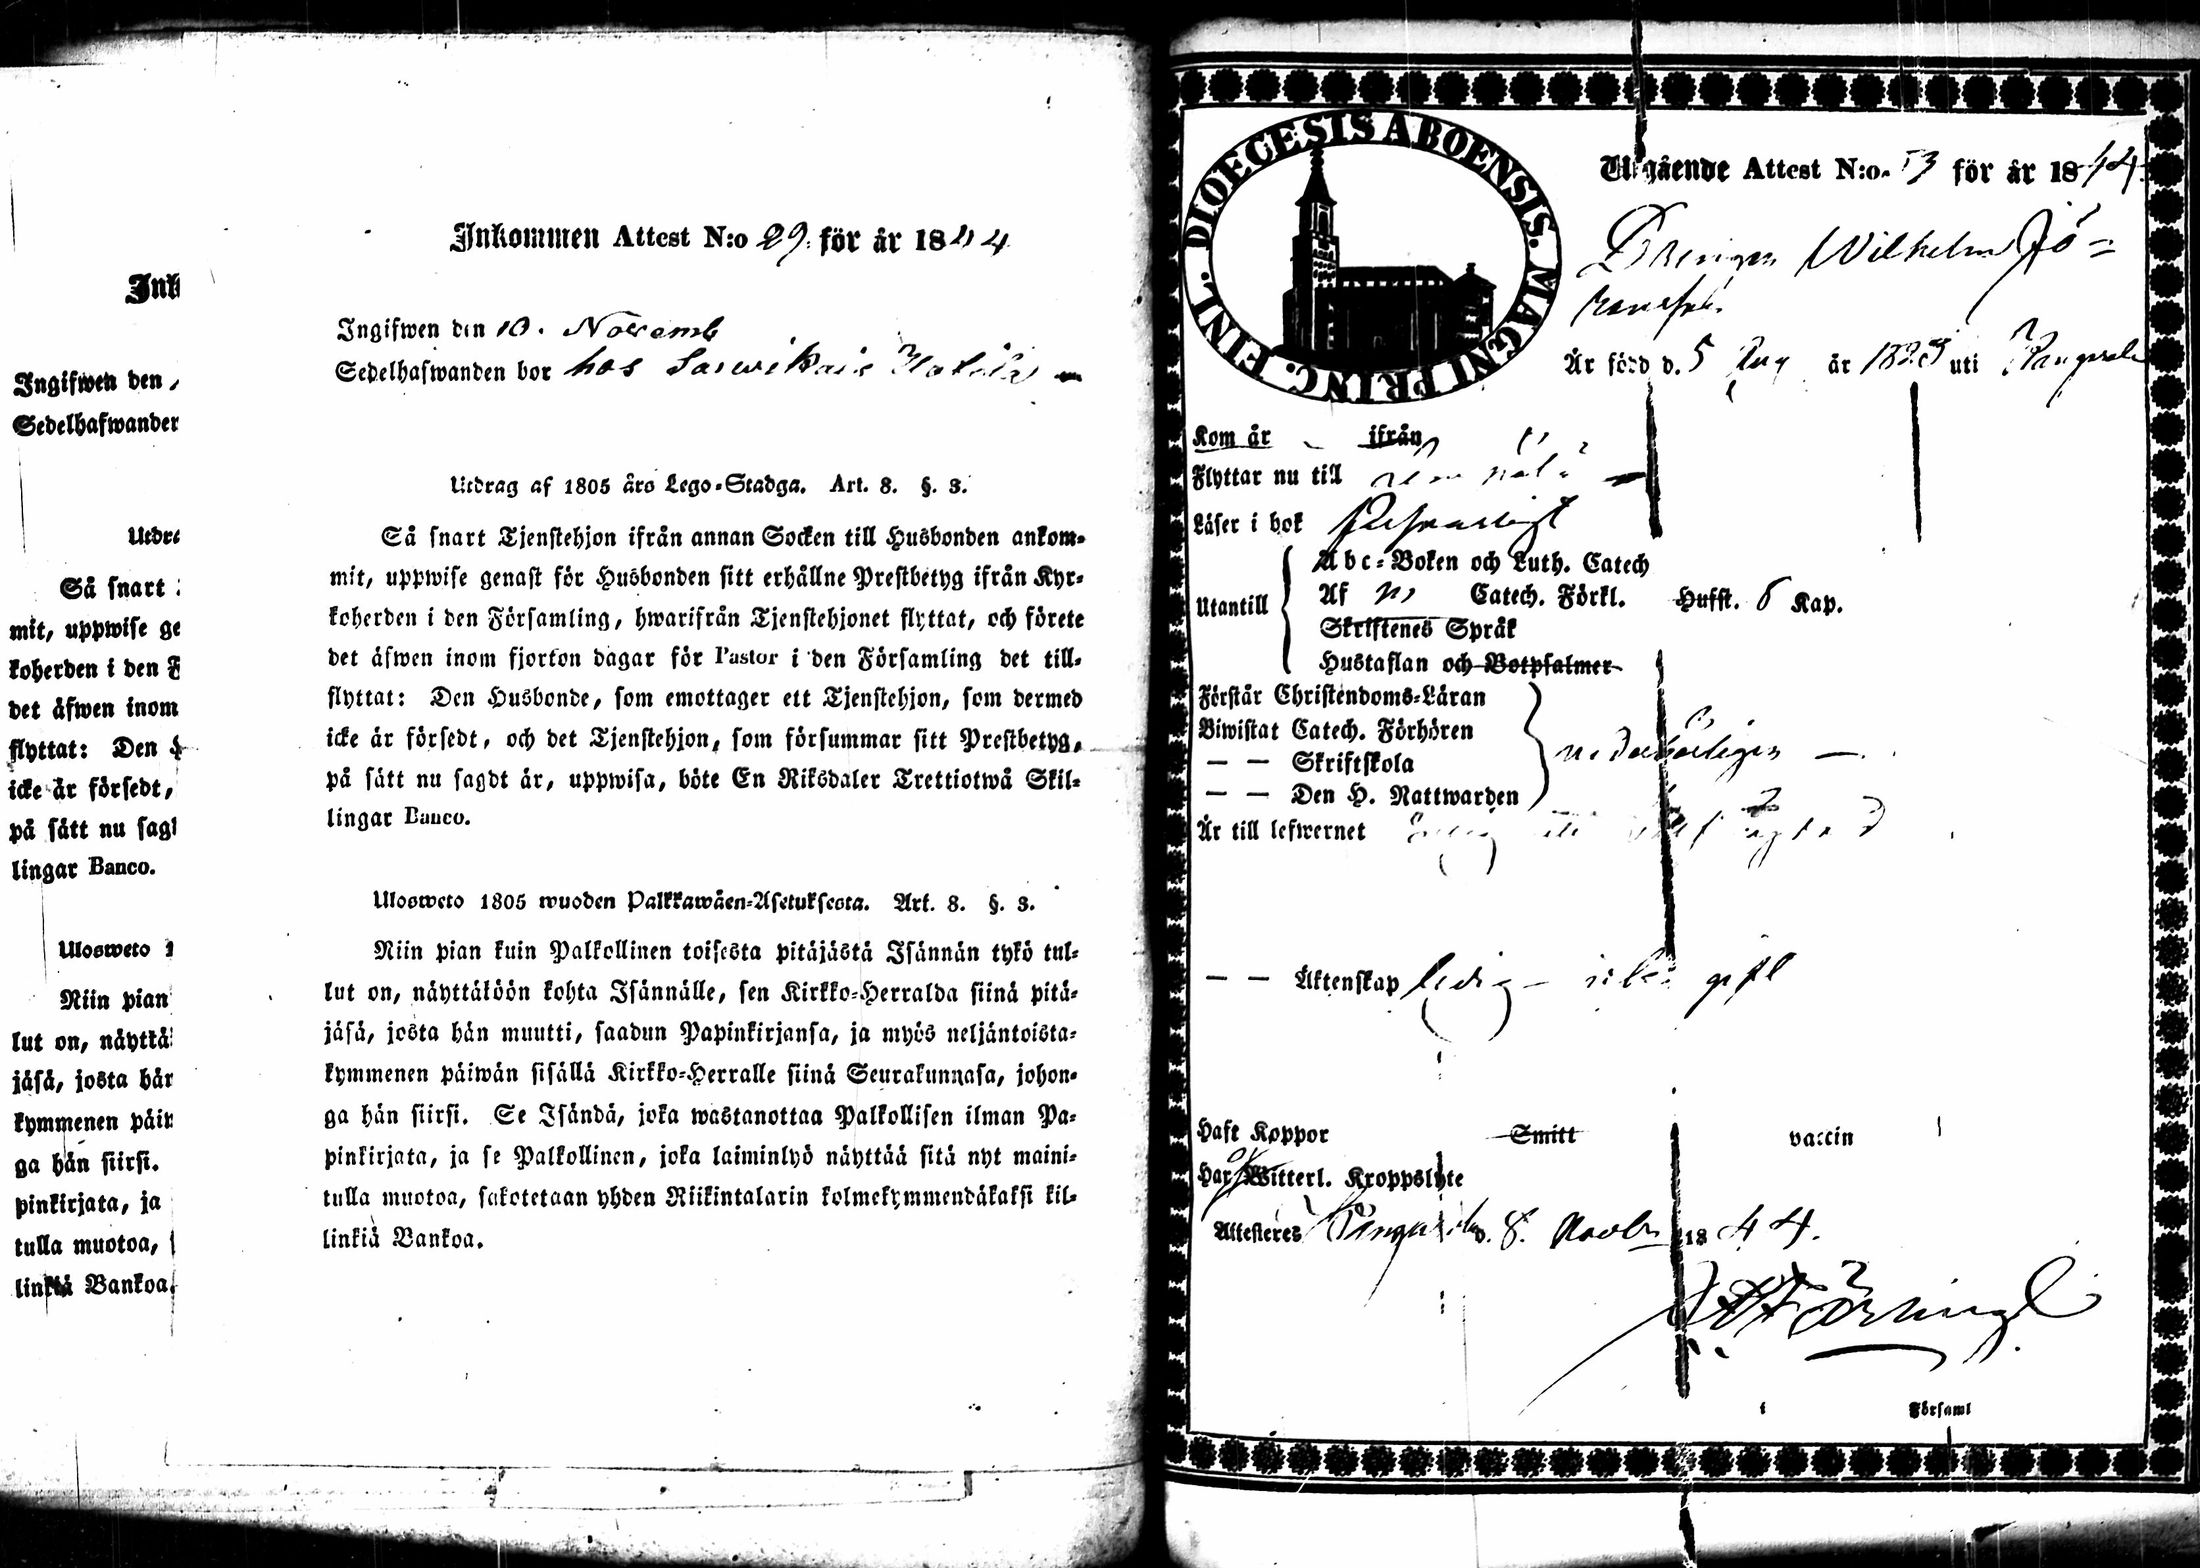 Inkommen Attest N:o 29. för år 1844
Ingifwen den 10. Novemb
Sedelhafwanden bor hos
Utdrag af 1805 års Lego-Stadga. Art. 8. §. 3.
Så snart Tjenstehjon ifrån annan Socken till Husbonden ankom-
mit, uppwise genast för Husbonden sitt erhållne Prestbetyg ifrån Kyr-
koherden i den Församling, hwarifrån Tjenstehjonet flyttat, och förete
det äfwen inom fjorton dagar för Pastor i den Församling det till-
flyttat: Den Husbonde, som emottager ett Tjenstehjon, som dermed
icke är försedt, och det Tjenstehjon, som försummar sitt Prestbetyg,
på sätt nu sagdt är, uppwisa, böte En Riksdaler Trettiotwå Skil-
lingar Banco.
Ulosweto 1805 wuoden Palkkawäen-Asetuksesta. Art. 8. §. 3.
Niin pian kuin Palkollinen toisesta pitäjästä Isännän tykö tul-
lut on, näyttäköön kohta Isännälle, sen Kirkko-Herralda siinä pitä-
jäsä, josta hän muutti, saadun Papinkirjansa, ja myös neljäntoista-
kymmenen päiwän sisällä Kirkko-Herralle siinä Seurakunnasa, johon-
ga hän siirsi. Se Isändä, joka wastanottaa Palkollisen ilman Pa-
pinkirjata, ja se Palkollinen, joka laiminlyö näyttää sitä nyt maini-
tulla muotoa, sakotetaan yhden Riikintalarin kolmekymmendäkaksi kil-
linkiä Bankoa.
Ink
Ingifwen den
Sedelhafwanden
Utdra
Så snart
mit, uppwise ge
koherden i den F
det äfwen inom
flyttat: Den
icke är försedt,
på sätt nu sagt
lingar Banco.
Ulosweto 1
Niin pian
lut on, näyttä
jäsä, josta hän
kymmenen päiw
ga hän siirsi.
pinkirjata, ja
tulla muotoa,
linkiä Bankoa.
DIOECESIS ABOENSIS. MAGNI PRINC. FINL.
Utgående Attest N:o. 53 för år 1844.
Drengen Wilhelm Jö-
ransson
Är född d. 5 Aug år 1823 uti Kangasala
Kom år ifrån
Flyttar nu till
Läser i bok
Utantill
Abc-Boken och Luth. Catech
Af Catech. Förkl. Hufst. 6 Kap.
Skriftenes Språk
Hustaflan och Botpsalmer
Förstår Christendoms-Läran
Biwistat Catech. Förhören
— — Skriftskola
— — Den H. Nattwarden
wederbörligen —
Är till lefwernet
— — Äktenskap ledig
Haft Koppor Smitt vaccin
Har Witterl. Kroppslyte
Attesteres Kangasala d. 8. Novbr 1844.
i Församl